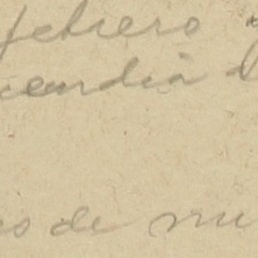 febrero
cendia
es de mu